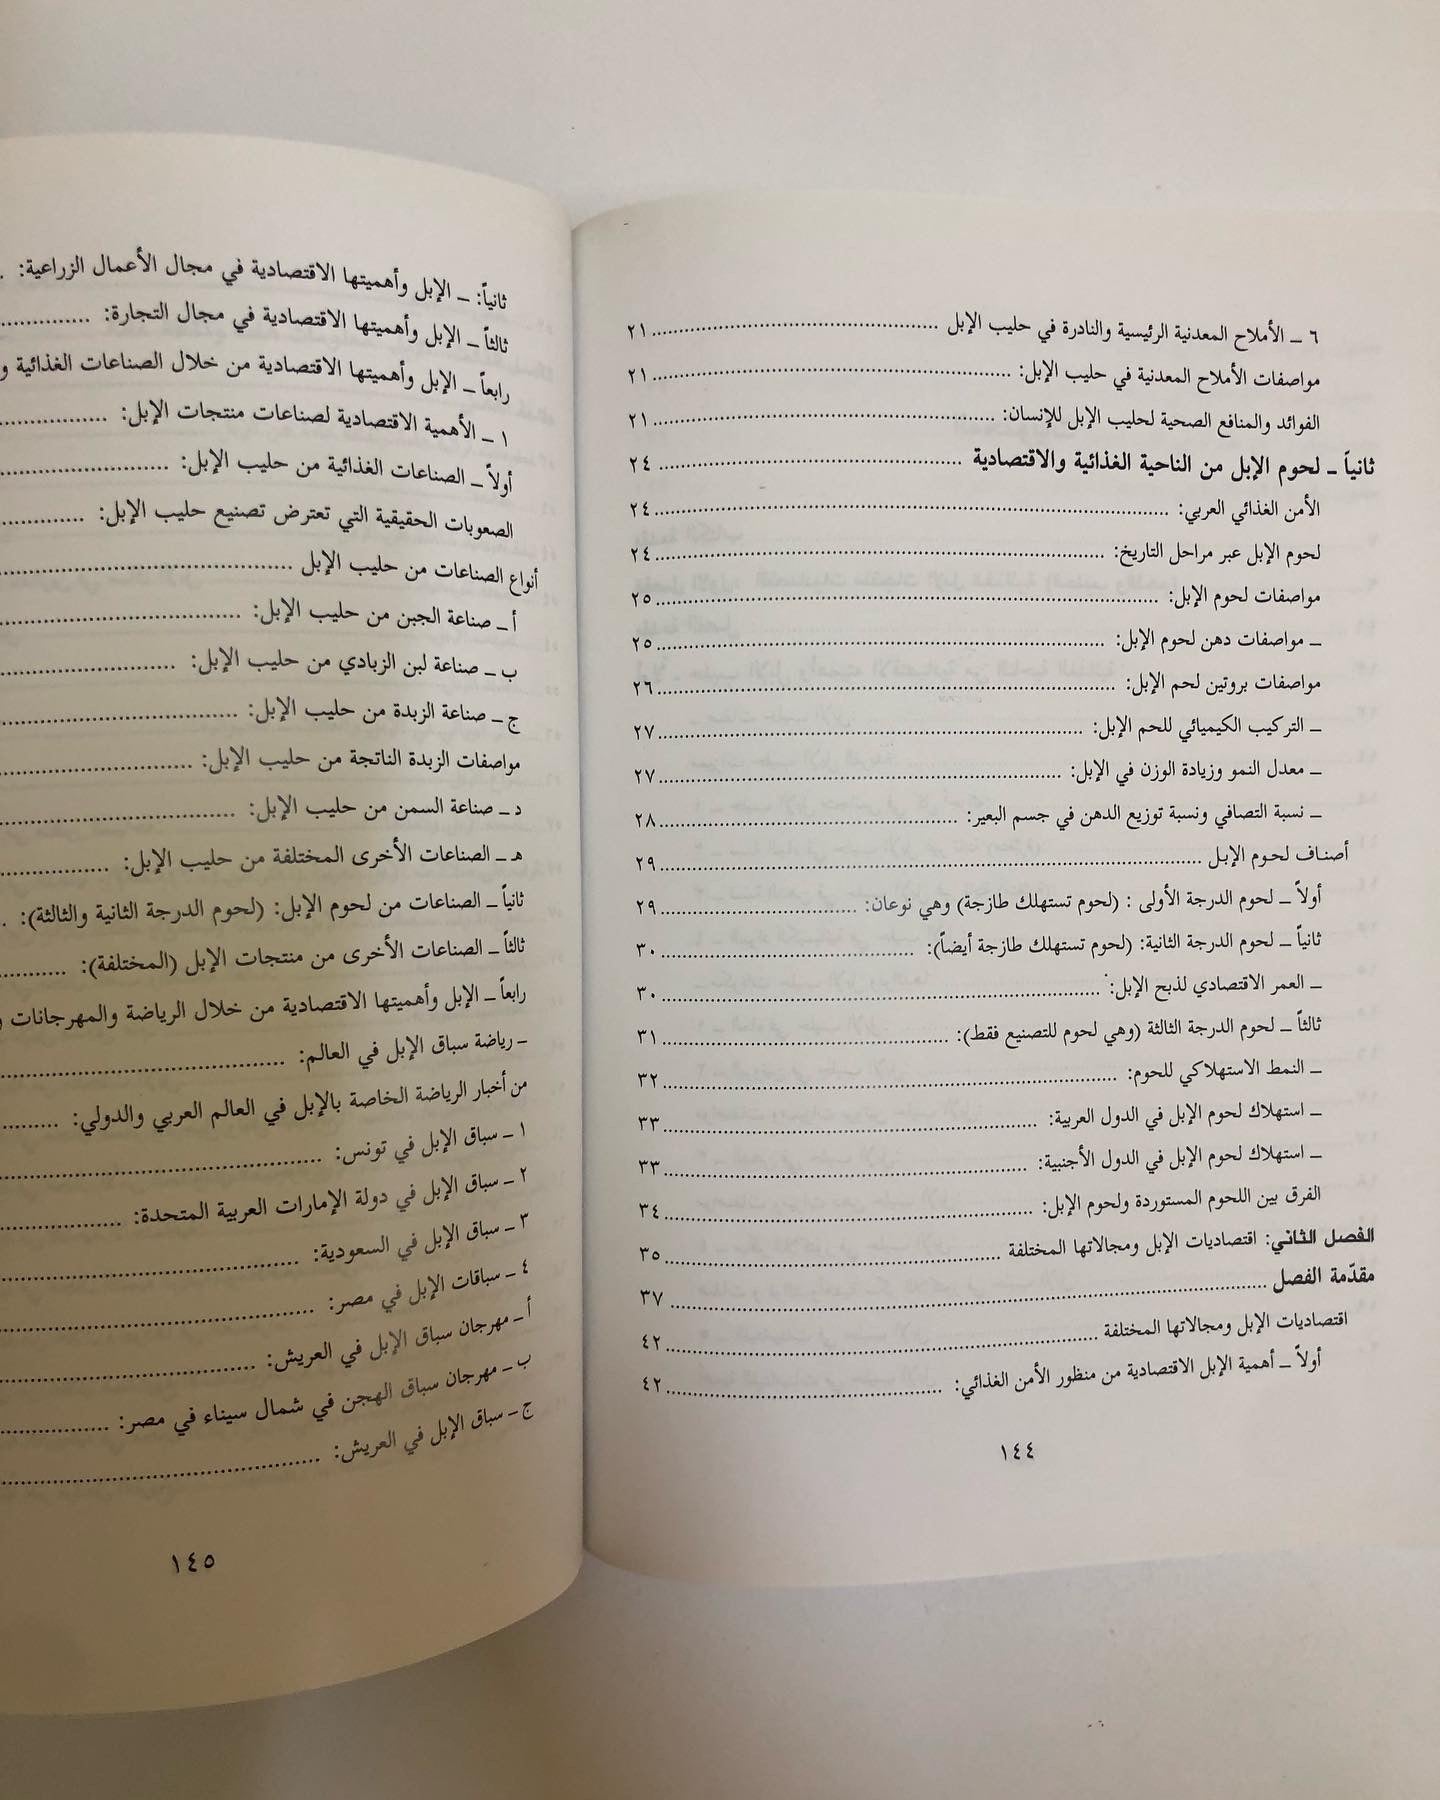 ٦ ــ الأملاح المعدنية الرئيسية والنادرة في حليب الإبل ........ ٢١
مواصفات الأملاح المعدنية في حليب الإبل: ........ ٢١
الفوائد والمنافع الصحية لحليب الإبل للإنسان: ........ ٢١
ثانياً ـ لحوم الإبل من الناحية الغذائية والاقتصادية ........ ٢٤
الأمن الغذائي العربي: ........ ٢٤
لحوم الإبل عبر مراحل التاريخ: ........ ٢٤
مواصفات لحوم الإبل: ........ ٢٥
ــ مواصفات دهن لحوم الإبل: ........ ٢٥
مواصفات بروتين لحم الإبل: ........ ٢٦
ــ التركيب الكيميائي للحم الإبل: ........ ٢٧
ــ معدل النمو وزيادة الوزن في الإبل: ........ ٢٧
ــ نسبة التصافي ونسبة توزيع الدهن في جسم البعير: ........ ٢٨
أصناف لحوم الإبل ........ ٢٩
أولاً ــ لحوم الدرجة الأولى : (لحوم تستهلك طازجة) وهي نوعان: ........ ٢٩
ثانياً ــ لحوم الدرجة الثانية: (لحوم تستهلك طازجة أيضاً): ........ ٣٠
ــ العمر الاقتصادي لذبح الإبل: ........ ٣٠
ثالثاً ــ لحوم الدرجة الثالثة (وهي لحوم للتصنيع فقط): ........ ٣١
ــ النمط الاستهلاكي للحوم: ........ ٣٢
ــ استهلاك لحوم الإبل في الدول العربية: ........ ٣٣
ــ استهلاك لحوم الإبل في الدول الأجنبية: ........ ٣٣
الفرق بين اللحوم المستوردة ولحوم الإبل: ........ ٣٤
الفصل الثاني: اقتصاديات الإبل ومجالاتها المختلفة ........ ٣٥
مقدّمة الفصل ........ ٣٧
اقتصاديات الإبل ومجالاتها المختلفة ........ ٤٢
أولاً ــ أهمية الإبل الاقتصادية من منظور الأمن الغذائي: ........ ٤٢
١٤٤
ثانياً: ــ الإبل وأهميتها الاقتصادية في مجال الأعمال الزراعية: .
ثالثاً ــ الإبل وأهميتها الاقتصادية في مجال التجارة: ........
رابعاً ــ الإبل وأهميتها الاقتصادية من خلال الصناعات الغذائية و
١ ــ الأهمية الاقتصادية لصناعات منتجات الإبل: ........
أولاً ــ الصناعات الغذائية من حليب الإبل: ........
الصعوبات الحقيقية التي تعترض تصنيع حليب الإبل: ........
أنواع الصناعات من حليب الإبل ........
أ ــ صناعة الجبن من حليب الإبل: ........
ب ــ صناعة لبن الزبادي من حليب الإبل: ........
ج ــ صناعة الزبدة من حليب الإبل: ........
مواصفات الزبدة الناتجة من حليب الإبل: ........
د ــ صناعة السمن من حليب الإبل: ........
هـ ــ الصناعات الأخرى المختلفة من حليب الإبل: ........
ثانياً ــ الصناعات من لحوم الإبل: (لحوم الدرجة الثانية والثالثة): .
ثالثاً ــ الصناعات الأخرى من منتجات الإبل (المختلفة): ........
رابعاً ــ الإبل وأهميتها الاقتصادية من خلال الرياضة والمهرجانات
ــ رياضة سباق الإبل في العالم: ........
من أخبار الرياضة الخاصة بالإبل في العالم العربي والدولي: ........
١ ــ سباق الإبل في تونس: ........
٢ ــ سباق الإبل في دولة الإمارات العربية المتحدة: ........
٣ ــ سباق الإبل في السعودية: ........
٤ ــ سباقات الإبل في مصر: ........
أ ــ مهرجان سباق الإبل في العريش: ........
ب ــ مهرجان سباق الهجن في شمال سيناء في مصر: ........
ج ــ سباق الإبل في العريش: ........
١٤٥